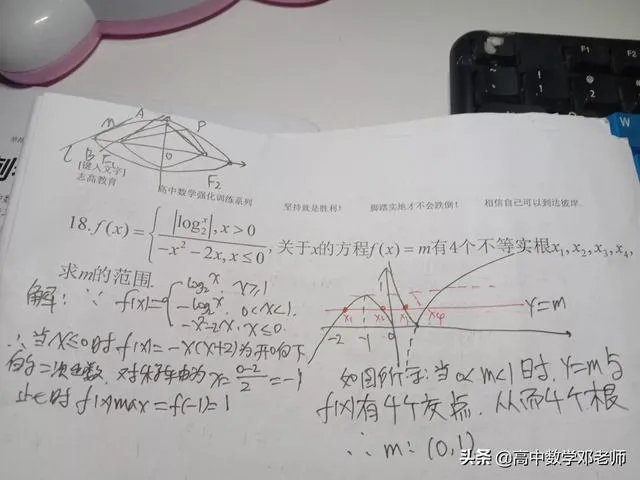 A
m
P
L
B
F₁
O
F₂
[键入文字]
志高教育
高中数学强化训练系列 坚持就是胜利! 脚踏实地才不会跌倒! 相信自己可以到达彼岸。
18. f(x) = { |log₂ˣ|, x > 0
−x² − 2x, x ≤ 0 , 关于x的方程f(x) = m有4个不等实根x₁, x₂, x₃, x₄,
求m的范围.
解: ∵ f(x)= { log₂ˣ , x≥1
−log₂ˣ, 0<x<1.
−x²−2x, x≤0.
∴当x≤0时 f(x)=−x(x+2)为开口向下
的二次函数, 对称轴为 x= (0−2)/2 =−1
此时 f(x)max=f(−1)=1
x₁ x₂ x₃ x₄ y=m
-2 -1 0
如图所示:当0<m<1时, y=m与
f(x)有4个交点, 从而4个根
∴ m: (0,1)
F1 F2
1
2
W
头条 @高中数学邓老师